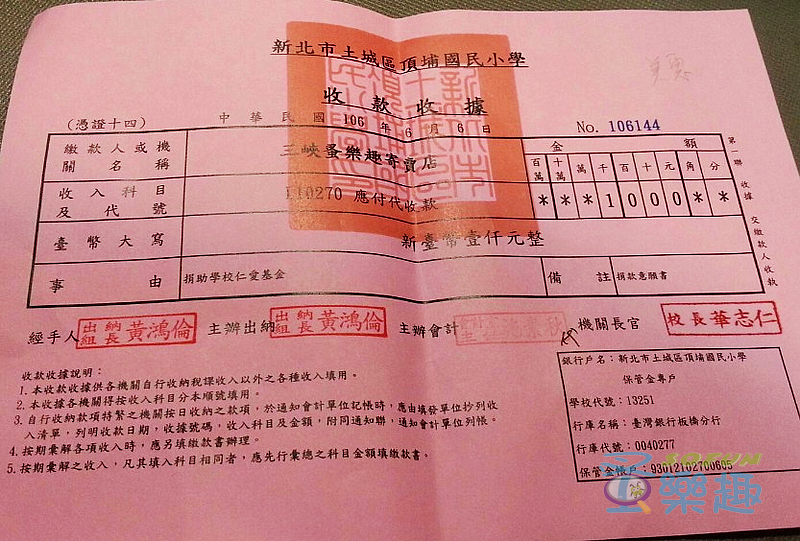 新北市土城區頂埔國民小學
收款收據
(憑證十四)
中華民國 106 年 6 月 6 日
No. 106144
繳款人或機關名稱
三峽蚤樂趣寄賣店
金額
百萬 十萬 萬 千 百 十 元 角 分
收入科目及代號
110270 應付代收款
* * * 1 0 0 0 * *
臺幣大寫
新臺幣壹仟元整
事由
捐助學校仁愛基金
備註
捐款意願書
第一聯 收據 交繳款人收執
經手人 出納組長 黃鴻倫
主辦出納 出納組長 黃鴻倫
主辦會計
機關長官 校長 華志仁
收款收據說明:
1. 本收款收據供各機關自行收納稅課收入以外之各種收入填用。
2. 本收據各機關得按收入科目分本順號填用。
3. 自行收納款項特繁之機關按日收納之款項,於通知會計單位記帳時,應由填發單位抄列收
入清單,列明收款日期,收據號碼,收入科目及金額,附同通知聯,通知會計單位列帳。
4. 按期彙解各項收入時,應另填繳款書辦理。
5. 按期彙解之收入,凡其填入科目相同者,應先行彙總之科目金額填繳款書。
銀行戶名:新北市土城區頂埔國民小學
保管金專戶
學校代號:13251
行庫名稱:臺灣銀行板橋分行
行庫代號:0040277
保管金帳戶:93012102700605
樂趣